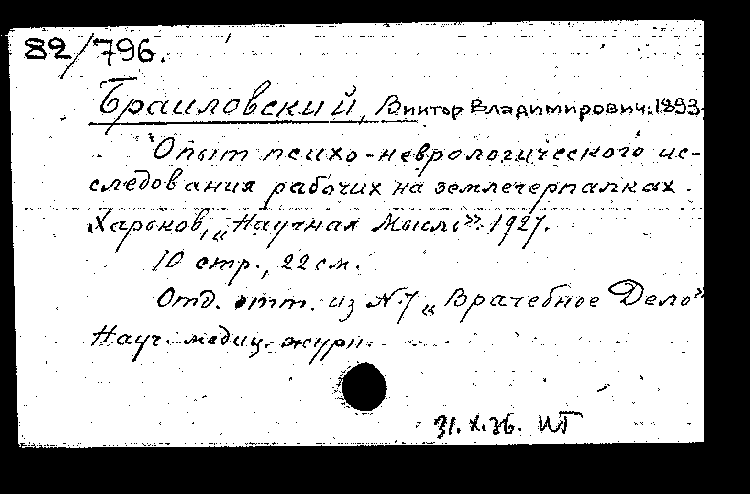 82/796.
Браиловский, Виктор Владимирович. 1893-
Опыт психо-неврологического ис-
следования рабочих на землечерпалках.
Харьков, „Научная Мысль". 1927.
10 стр., 22 см.
Отд. отт. из №7 „Врачебное Дело"
Науч. медиц. журн.
31.X.36. ИТ